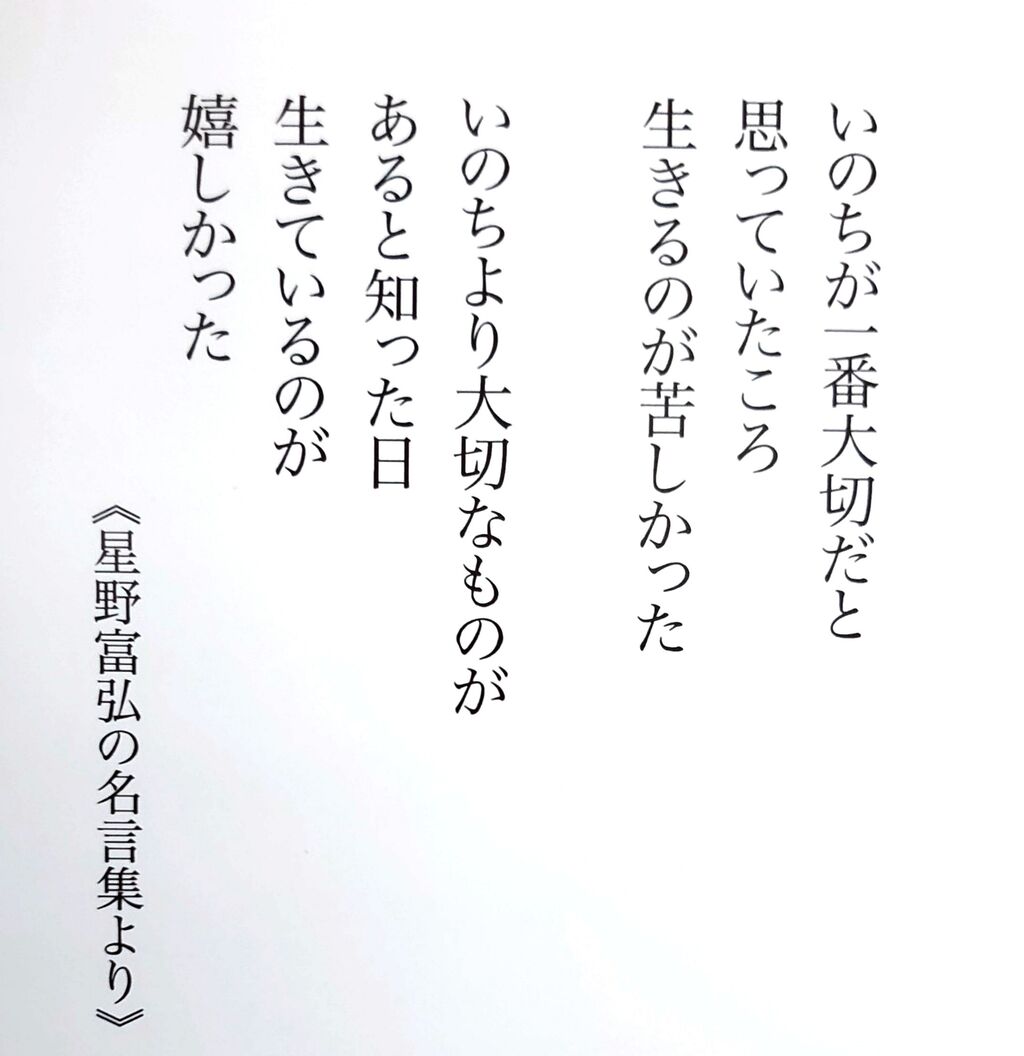 いのちが一番大切だと
思っていたころ
生きるのが苦しかった
いのちより大切なものが
あると知った日
生きているのが
嬉しかった
《星野富弘の名言集より》